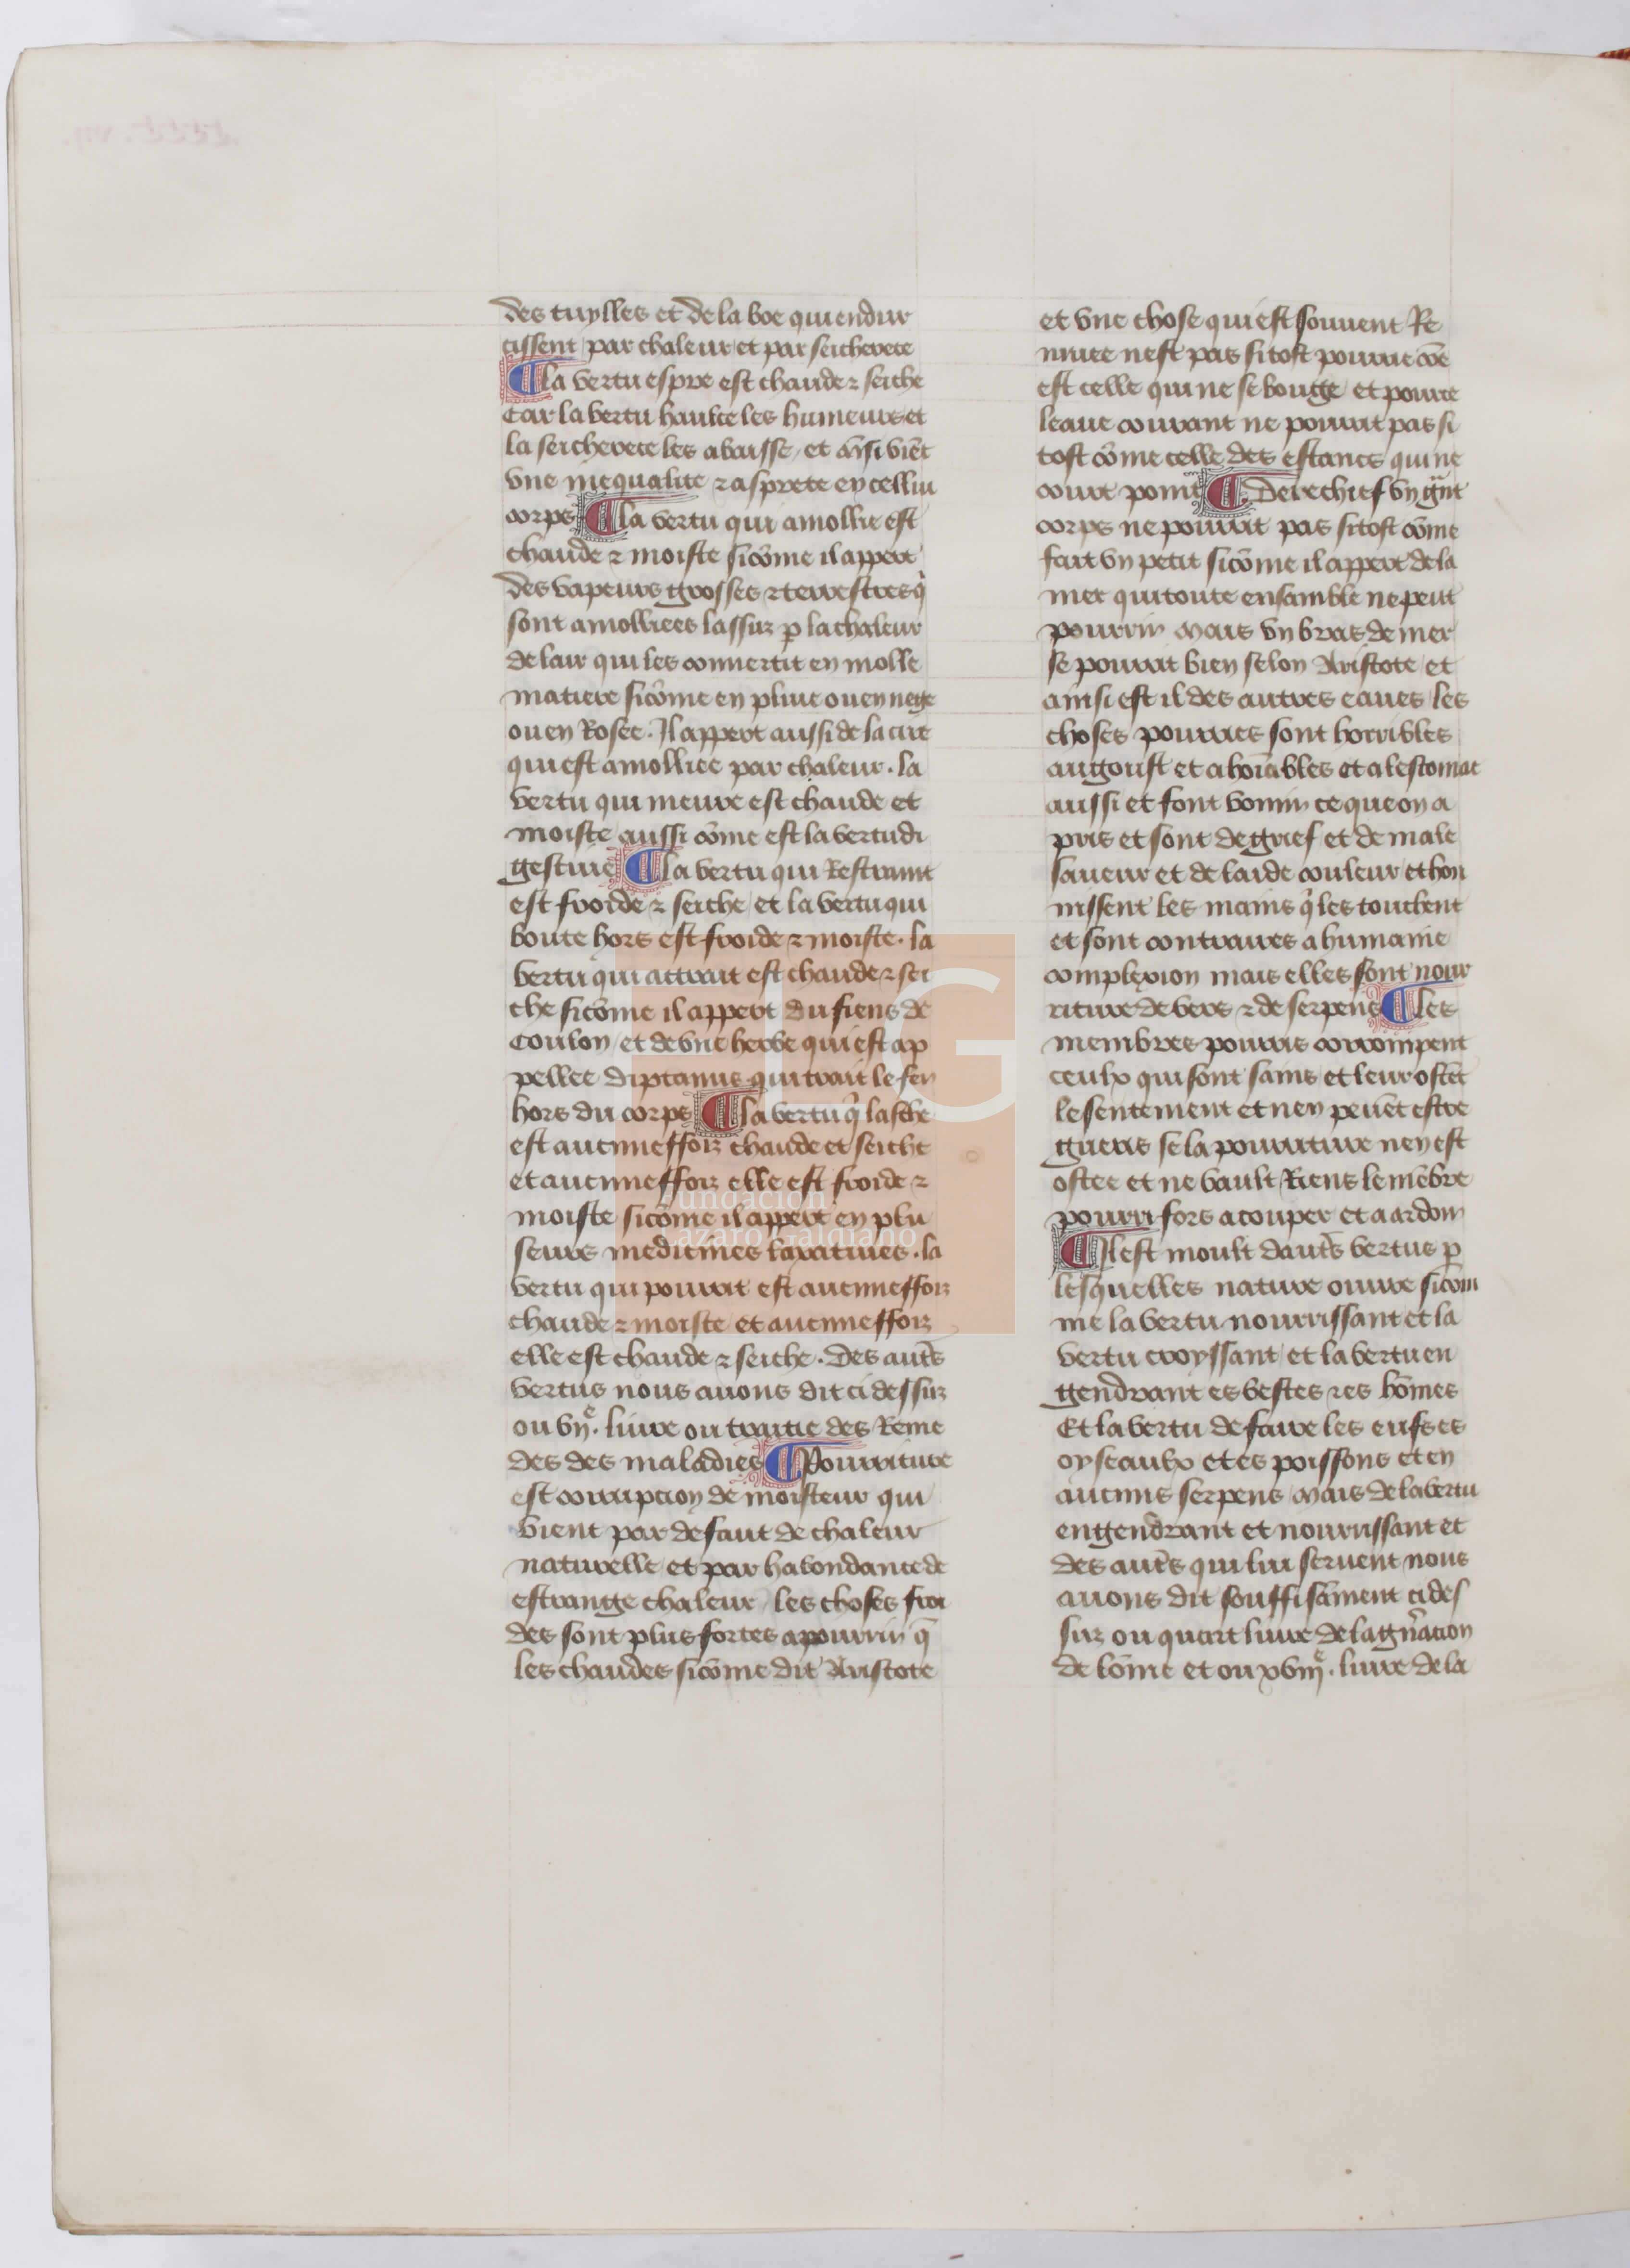 des tuylles et de la boe qui endur
cissent par chaleur et par seicherece
la vertu espre est chaude ⁊ seiche
Car la vertu haulce les humeurs et
la seicherece les abaisse et aīsi viēt
vne inequalite ⁊ asprete en cellui
corps la vertu qui amollie est
chaude ⁊ moiste sicōme il appert
des vapeurs grosses ⁊ terrestres q̄
sont amolliees lassuz p̲ la chaleur
de lair qui les conuertit en molle
matiere sicōme en pluie ou en nege
ou en Rosee. Il appert aussi de la cire
qui est amolliee par chaleur. la
vertu qui meure est chaude et
moiste aussi cōme est la vertu di
gestiue la vertu qui Restraint
est froide ⁊ seiche et la vertu qui
boute hors est froide ⁊ moiste. la
vertu qui attrait est chaude ⁊ sei
che sicōme il appert du fiens de
Coulon et de vne herbe qui est ap
pellee diptanus qui trait le fen
hors du corps la vertu q̄ lasche
est aucuneffoiz chaude et seiche
et aucuneffoiz elle est froide ⁊
moiste sicōme il appert en plu
seurs medicines laxatiues. la
vertu qui pourrit est aucuneffoiz
chaude ⁊ moiste et aucuneffoiz
elle est chaude ⁊ seiche. des autēs
vertus nous auons dit ci dessuz
ou vijᵉ. liure ou traitie des Reme
des des maladies Pourriture
est corrupcion de moisteur qui
vient par defaut de chaleur
naturelle et par habondance de
estrange chaleur les choses froi
des sont plus fortes a pourrir q̄
les chaudes sicōme dit Aristote
et vne chose qui est souuent Re
muee nest pas si tost pourrie cōe
est celle qui ne se bouge et pour ce
leaue courant ne pourrit pas si
tost cōme celle des estancs qui ne
court point Derechief vn gr̄nt
corps ne pourrit pas si tost cōme
fait vn petit sicōme il appert de la
mer qui toute ensamble ne peut
pourrir mais vn bras de mer
se pourrit bien selon Aristote et
ainsi est il des autres eaues les
choses pourries sont horribles
au goust et aboiables et a lestomac
aussi et font vomir ce que on a
pris et sont de grief et de male
saueur et de laide couleur et hon
nissent les mains q̄ les touchent
et sont contraires a humaine
complexion mais elles sont nour
riture de vers ⁊ de serpens les
membres pourris corrompent
ceulx qui sont sains et leur ostēt
le sentement et nen peuēt estre
gueris se la pourriture nen est
ostee et ne vault Riens le mēbre
pourri fors a couper et a ardoir
Il est moult dautēs vertus p̲
lesquelles nature ouure sicom
me la vertu nourrissant et la
vertu croyssant et la vertu en
gendrant es bestes ⁊ es hōmes
Et la vertu de faire les eufs es
oyseaulx et es poissons et en
aucuns serpens mais de la vertu
engendrant et nourrissant et
des autēs qui lui seruent nous
auons dit souffisāment ci des
suz ou quart liure de la gn̄racion
de lōme et ou xviijᵉ. liure de la
Fundación
Lázaro Galdiano
LG